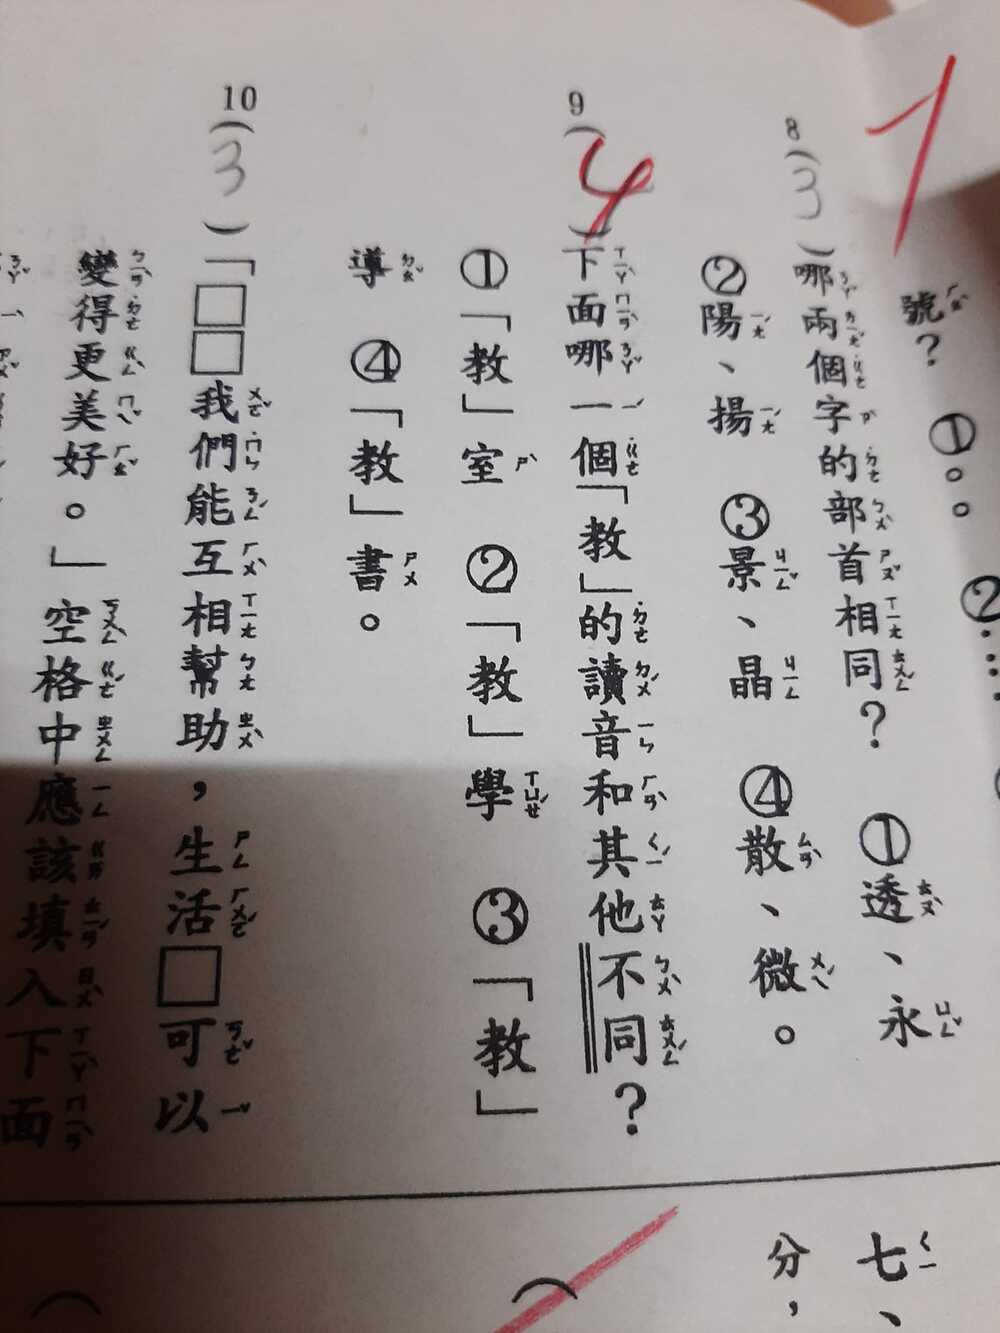 號？ ①。。 ②
8(3)哪兩個字的部首相同？ ①透、永
②陽、揚 ③景、晶 ④散、微。
9(4)下面哪一個「教」的讀音和其他不同？
①「教」室 ②「教」學 ③「教」
導 ④「教」書。
10(3)「□□我們能互相幫助，生活□可以
變得更美好。」空格中應該填入下面
七、
分，